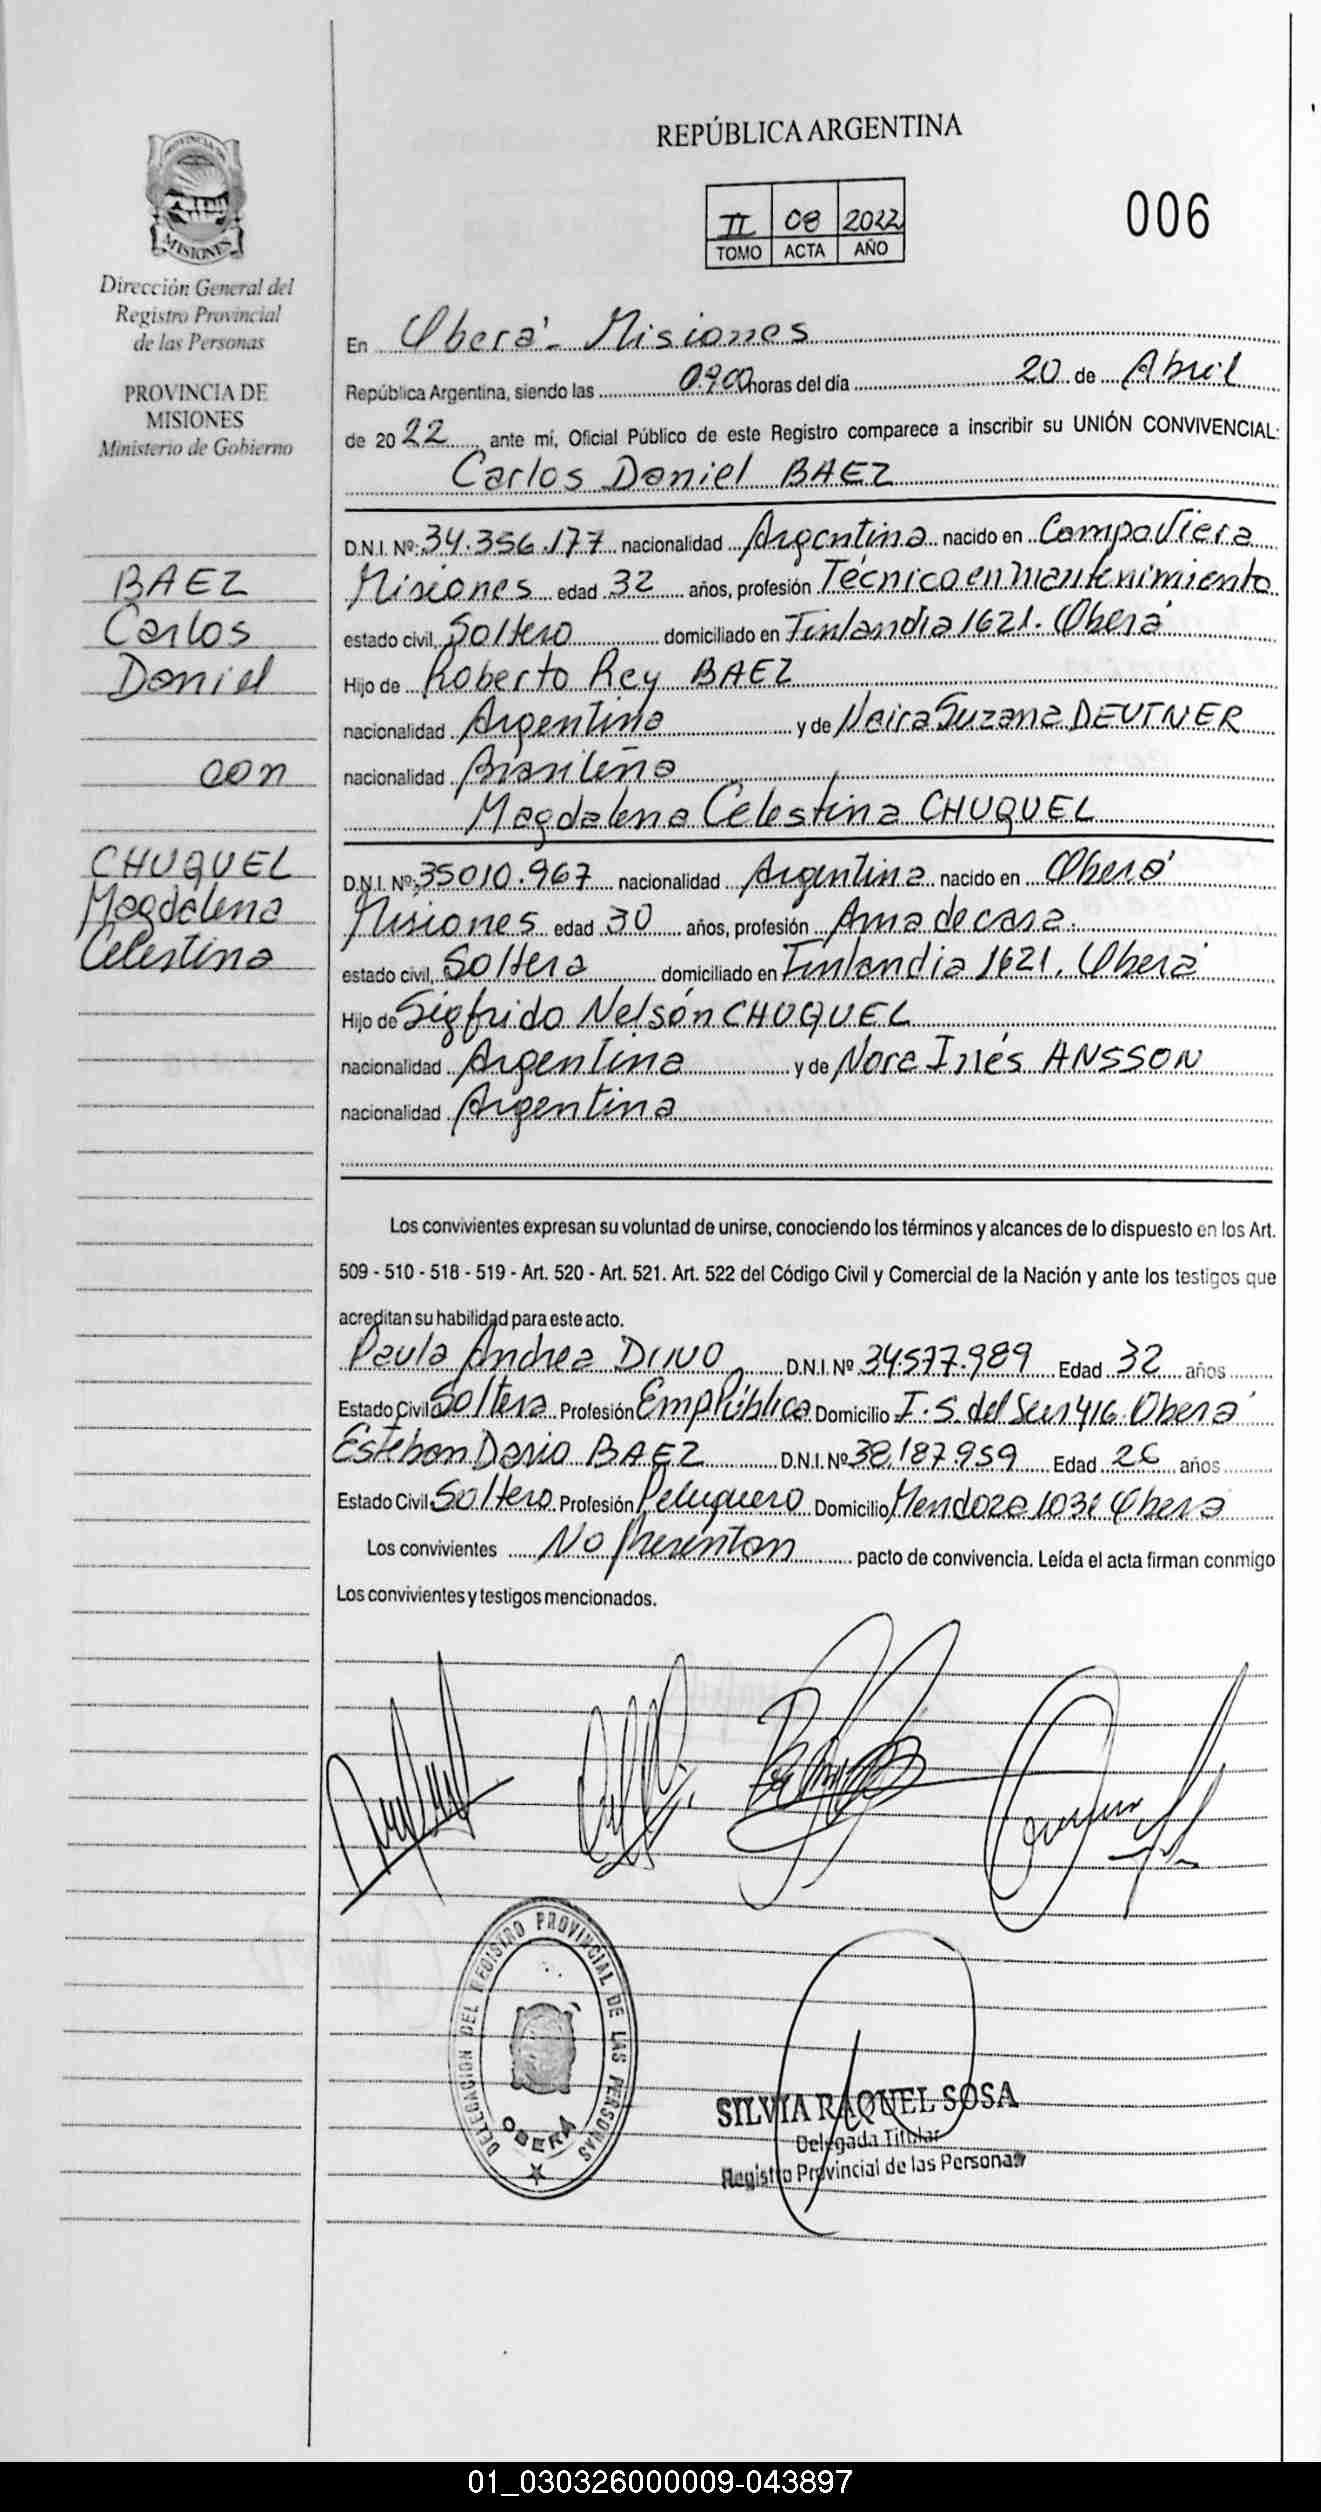 REPÚBLICA ARGENTINA
II 08 2022
TOMO ACTA AÑO
006
PROVINCIA DE
MISIONES
Dirección General del
Registro Provincial
de las Personas
PROVINCIA DE
MISIONES
Ministerio de Gobierno
BAEZ
Carlos
Daniel
con
CHUQUEL
Magdalena
Celestina
En Oberá - Misiones
República Argentina, siendo las 09.00 horas del día 20 de Abril
de 2022 ante mí, Oficial Público de este Registro comparece a inscribir su UNIÓN CONVIVENCIAL:
Carlos Daniel BAEZ
D.N.I. Nº: 34.356.177 nacionalidad Argentina nacido en Campo Viera
Misiones edad 32 años, profesión Técnico en mantenimiento
estado civil, Soltero domiciliado en Finlandia 1621. Oberá
Hijo de Roberto Rey BAEZ
nacionalidad Argentina y de Neira Suzana DEUTNER
nacionalidad Brasileña
Magdalena Celestina CHUQUEL
D.N.I. Nº: 35010.967 nacionalidad Argentina nacido en Oberá
Misiones edad 30 años, profesión Ama de casa.
estado civil, Soltera domiciliado en Finlandia 1621. Oberá
Hijo de Sigfrido Nelsón CHUQUEL
nacionalidad Argentina y de Nora Inés ANSSON
nacionalidad Argentina
Los convivientes expresan su voluntad de unirse, conociendo los términos y alcances de lo dispuesto en los Art.
509 - 510 - 518 - 519 - Art. 520 - Art. 521. Art. 522 del Código Civil y Comercial de la Nación y ante los testigos que
acreditan su habilidad para este acto.
Paula Andrea D.N.I. Nº 34.577.989 Edad 32 años
Estado Civil Soltera Profesión Emp Pública Domicilio I. S. del Sur 416 Oberá
Esteban Dario BAEZ D.N.I. Nº 38.187.959 Edad 26 años
Estado Civil Soltero Profesión Peluquero Domicilio Mendoza Oberá
Los convivientes No presentan pacto de convivencia. Leída el acta firman conmigo
Los convivientes y testigos mencionados.
DELEGACION DEL REGISTRO PROVINCIAL DE LAS PERSONAS
OBERÁ
SILVIA RAQUEL SOSA
Delegada Titular
Registro Provincial de las Personas
01_030326000009-043897